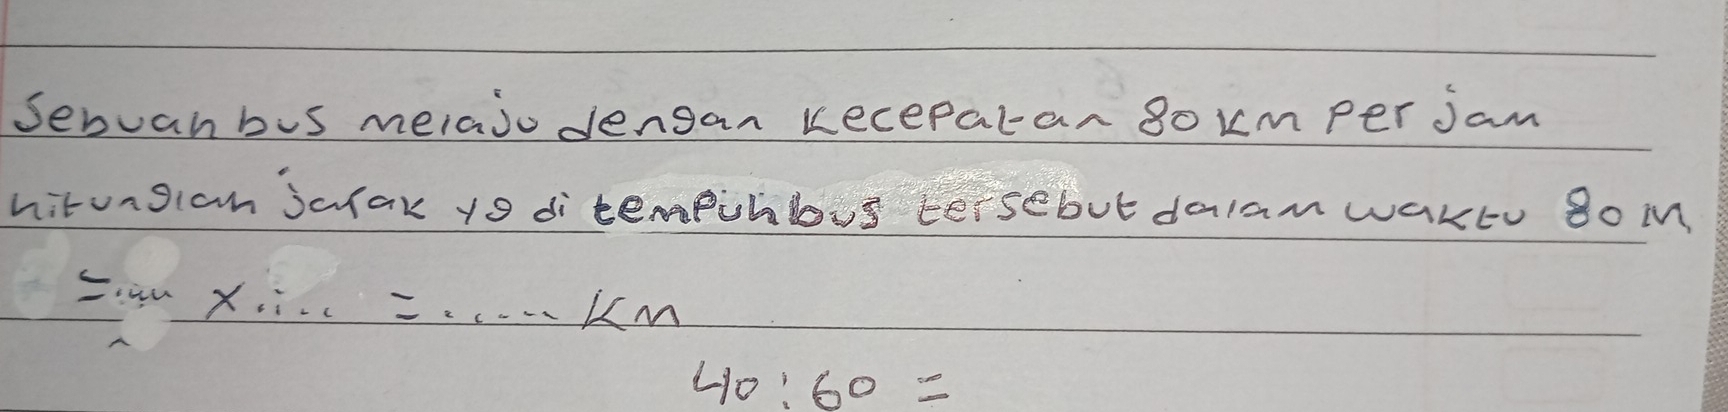 Sebuah bus melaju dengan kecepatan 80 KM Per jam
hitunglah jarak yg di tempuh bus tersebut dalam waktu 80 M
=.... x ..... = ...... KM
40 : 60 =